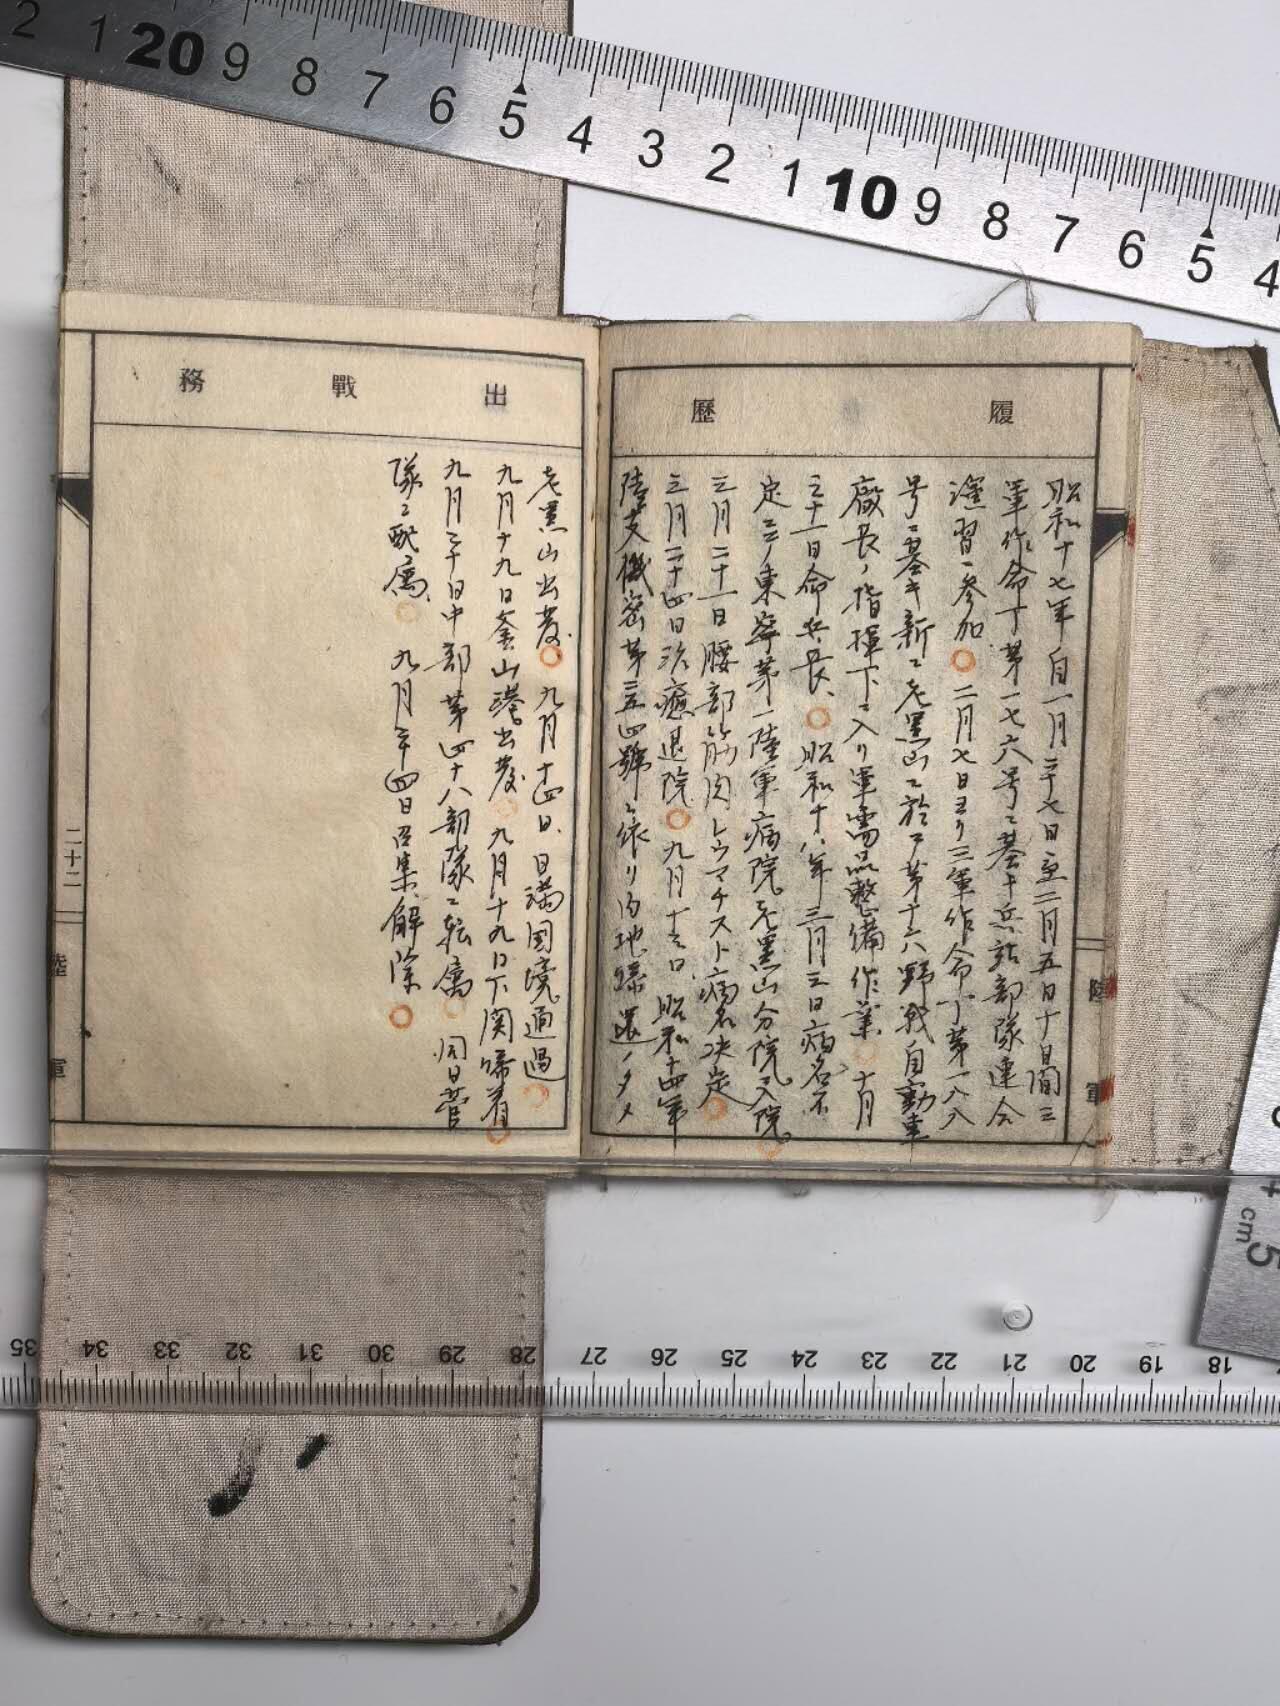 2 1 20 9 8 7 6 5 4 3 2 1 10 9 8 7 6 5 4
履歴
昭和十七年自一月二十七日至二月五日十日間三
軍作命丁第一七六号ニ基キ兵站部隊連合
演習ニ参加 二月七日ヨリ三軍作命丁第一八八
号ニ基キ新ニ老黒山ニ於テ第十六野戦自動車
廠長ノ指揮下ニ入リ軍需品整備作業 十月
三十一日命兵長、昭和十八年三月三日病名不
定ニテ東寧第一陸軍病院老黒山分院入院
三月二十一日腰部筋肉レウマチスト病名決定
三月二十四日治癒退院 九月十三日昭和十四年
陸支機密第三五四號ニ依リ内地帰還ノタメ
陸軍
出戰務
老黒山出發 九月十四日、日満国境通過
九月十九日釜山港出發 九月十九日下関帰着
九月二十日中部第四十八部隊ニ転属 同日营
隊ニ配属、九月二十四日召集解除
二十二
陸軍
cm 5
35 34 33 32 31 30 29 28 27 26 25 24 23 22 21 20 19 18